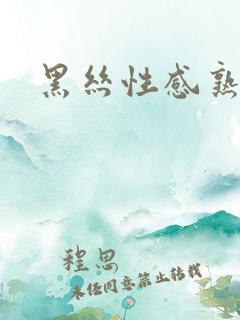 黑丝性感熟
程思
未经同意禁止转载